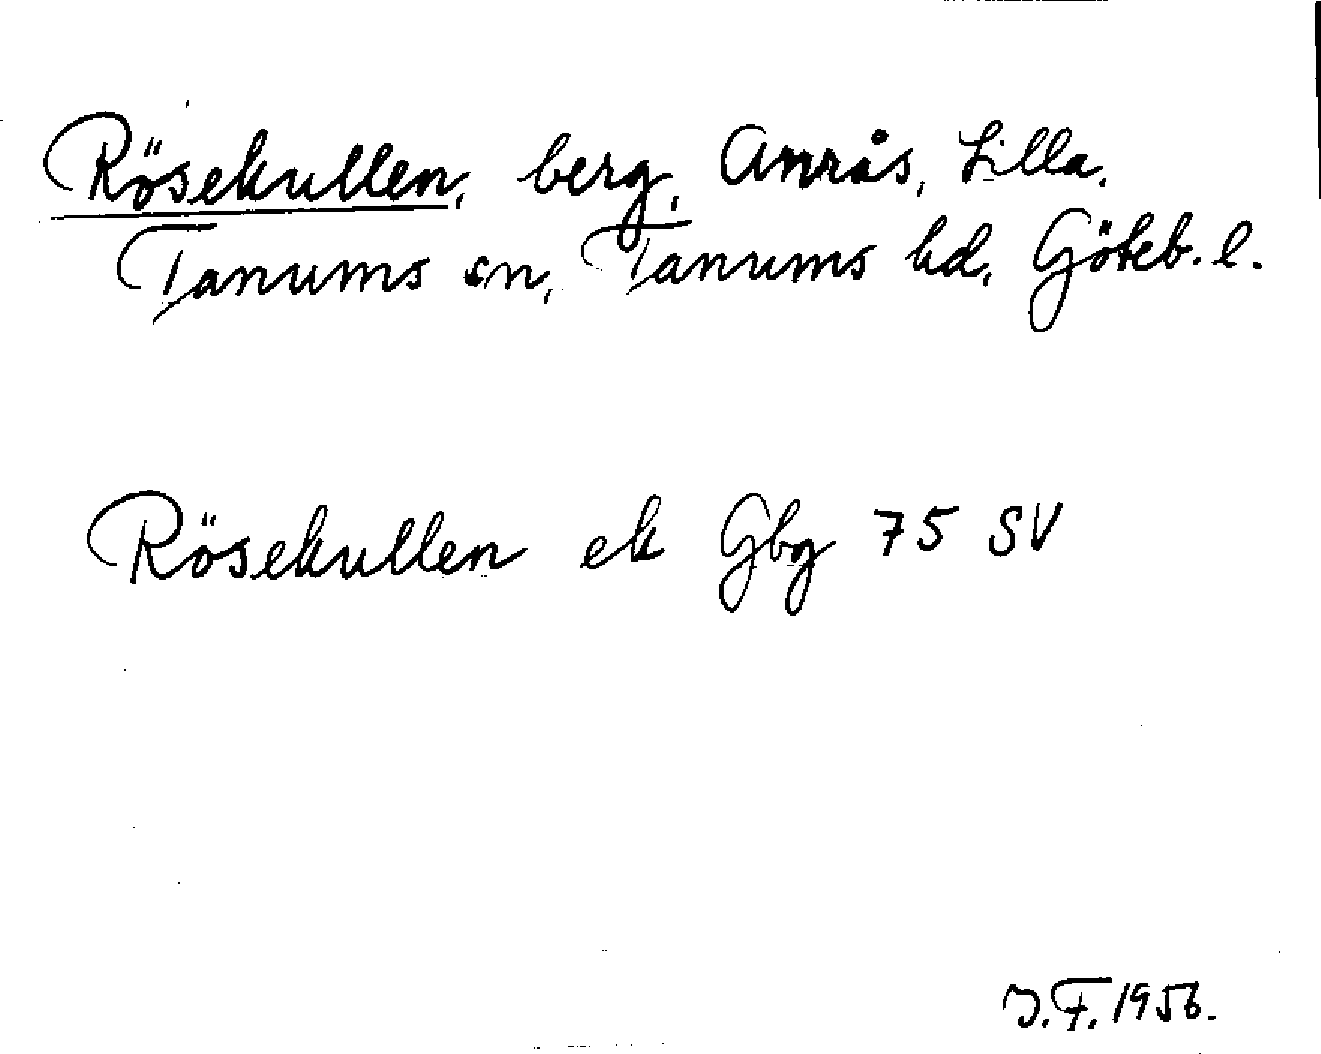 Rösekullen, berg, Anrås, Lilla,
Tanums sn, Tanums hd, Göteb. l.
Rösekullen ek Gbg 75 SV
J.F. 1956.